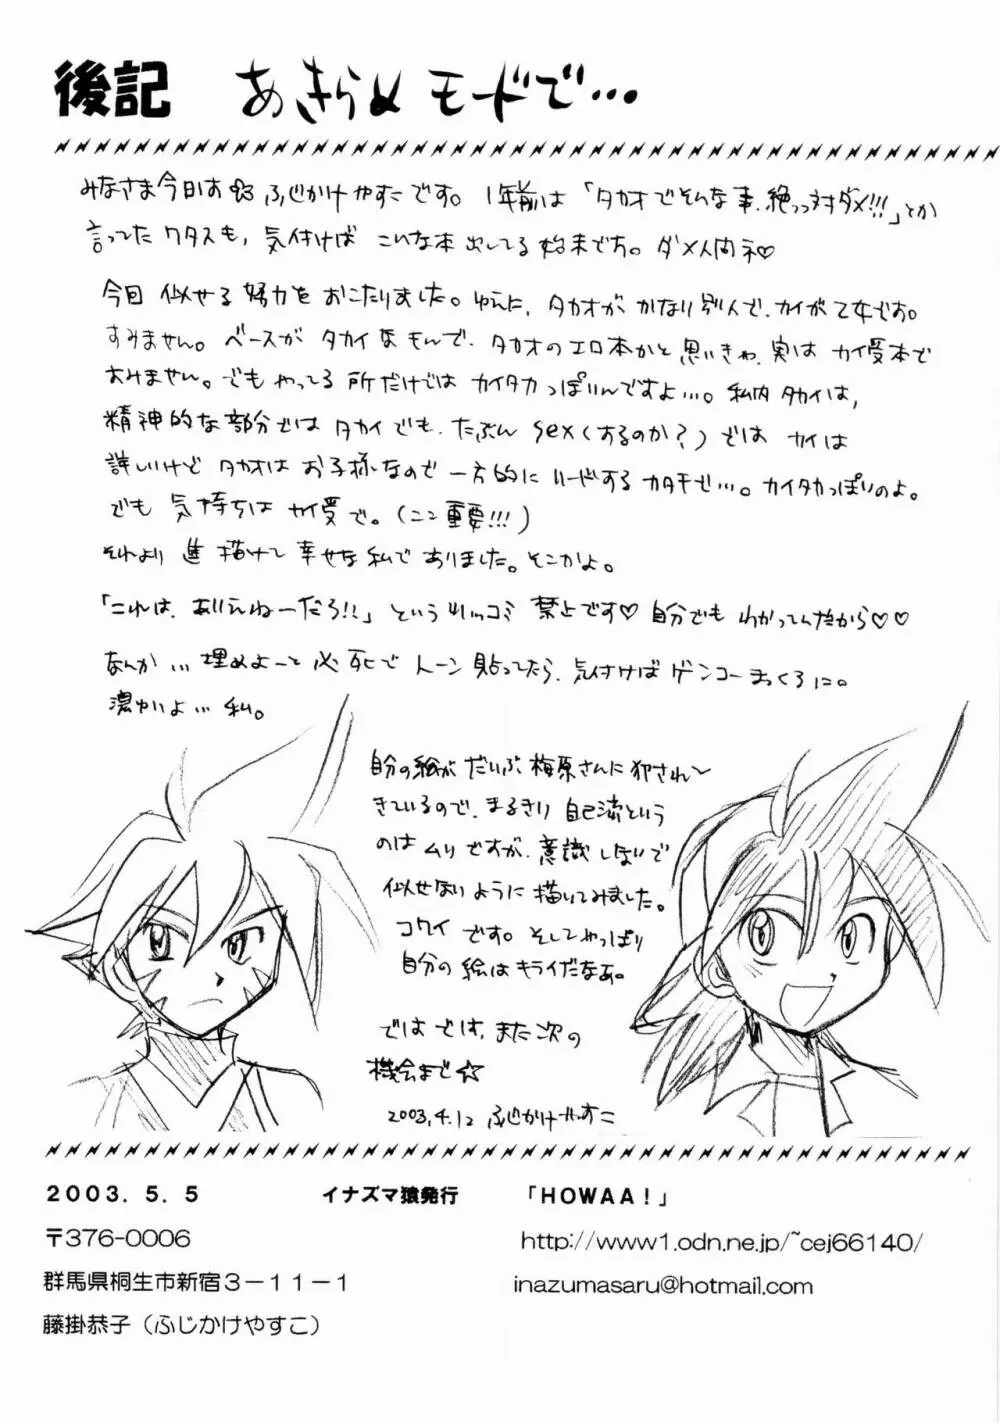 後記 あきらめモードで…
みなさま今日わ ふじかけやすこです。1年前は「タカオでそんな事、絶っっ対ダメ!!!」とか
言ってたワタスも、気付けば こんな本出してる始末です。ダメ人間ネ♡
今回 似せる努力をおこたりました。ゆえに、タカオがかなり別人で、カイが乙女です。
すみません。ベースがタカイなもんで、タカオのエロ本かと思いきや、実は カイ受本で
すみません。でもやってる所だけではカイタカっぽいんですよ…。私内タカイは、
精神的な部分ではタカイでも、たぶんsex(するのか?)では カイは
詳しいけど タカオはお子様なので一方的にリードするカタチで…。カイタカっぽいのよ。
でも 気持ちは カイ受で。(ここ重要!!!)
それより 進 描けて 幸せな私でありました。そこかよ。
「これは、ありえねーだろ!!」というツッコミ 禁止です♡ 自分でも わかってんだから♡♡
なんか… 埋めよーと必死でトーン貼ってたら、気付けばゲンコーまっくろに。
濃かいよ… 私。
自分の絵がだいぶ梅原さんに犯され〜
きているので、まるきり自己流という
のはムリですが、意識しないで
似せないように描いてみました。
コワイです。そしてやっぱり
自分の絵はキライだなあ。
ではでは、また次の
機会まで☆
2003.4.12 ふじかけやすこ
2003.5.5 イナズマ猿発行 「HOWAA!」
〒376-0006 http://www1.odn.ne.jp/~cej66140/
群馬県桐生市新宿3-11-1 inazumasaru@hotmail.com
藤掛恭子(ふじかけやすこ)